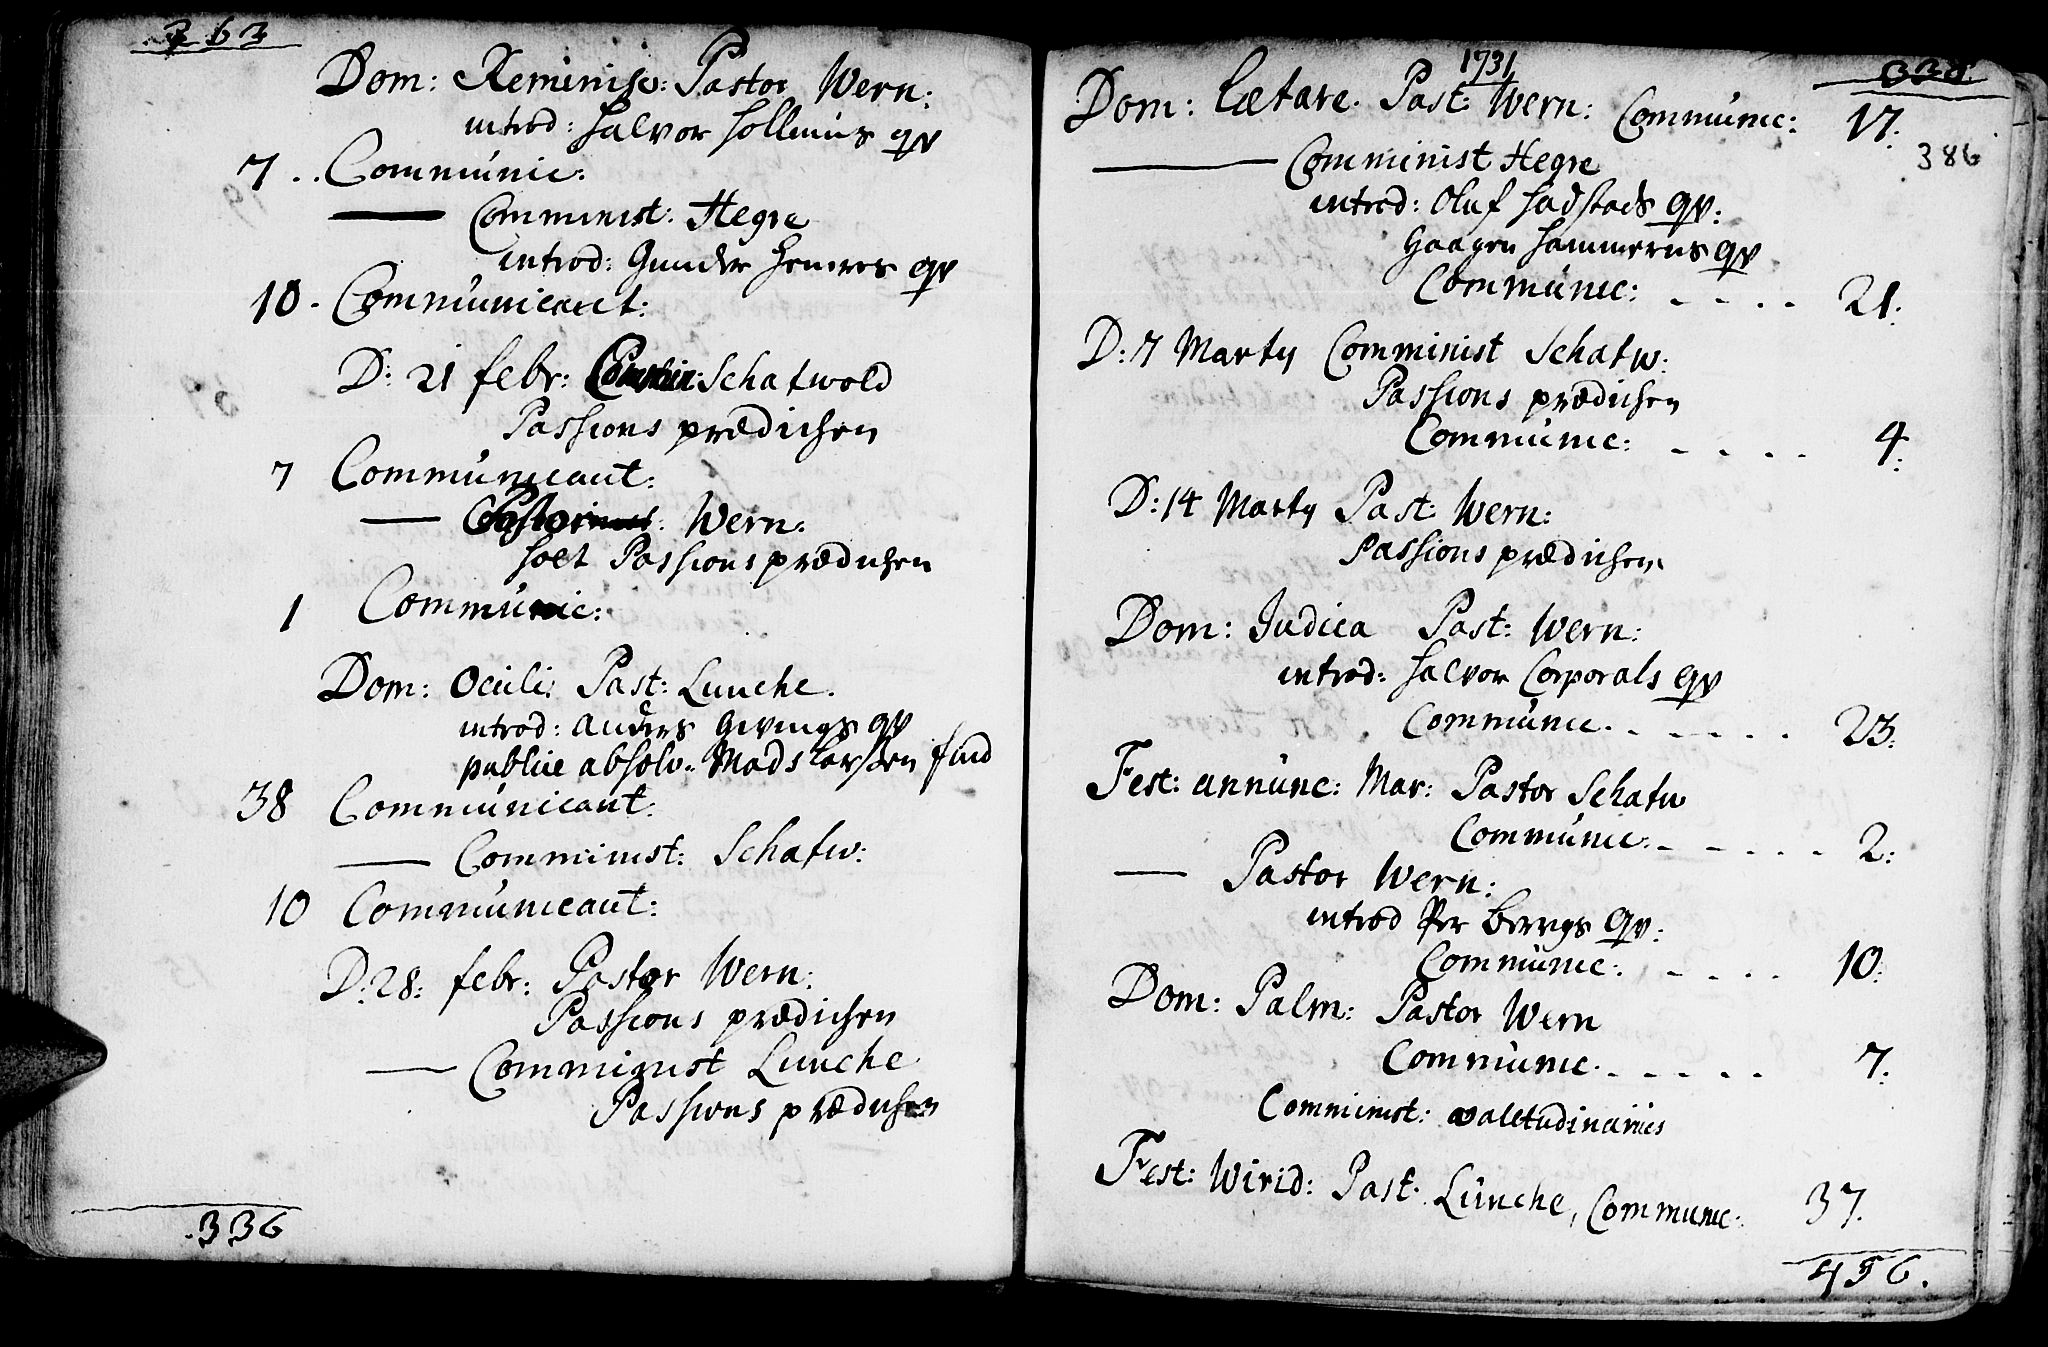 263
Dom: Reminisc: Pastor Wern:
introd: Halvor Hollmus qv
7 .. Communic:
— Comminist: Hegre
introd: Gunder Hemres qv
10 - Communicant:
D: 21 febr: Schatwold
Passions prædichen
7 Communicant:
— Wern:
holt Passions prædichen
1 Communic:
Dom: Oculi: Past: Lunche.
introd: Anders Gevings qv
publice absolv. Mads Larsøen
38 Communicant:
— Comminist: Schatw:
10 Communicant:
D: 28: febr: Pastor Wern:
Passions prædichen
— Comminist Lunche
Passions prædichen
336
1731
Dom: Lætare. Past: Wern: Communic: 17:
386
— Comminist Hegre
introd: Oluf Hadstads qv:
Haagen Hammerns qv
Communic: - - - - 21:
D: 7 Martij Comminist Schatw:
Passions prædichen
Communic: - - - - 4:
D: 14 Martij Past: Wern:
Passions prædichen
Dom: Judica Past: Wern:
introd: Halvor Corporals qv
Communic. - - - - - 23:
Fest: annunc: Mar: Pastor Schatw
Communic. - - - - - 2:
— Pastor Wern:
introd Per Bergs qv:
Communic: - - - - 10:
Dom: Palm: Pastor Wern
Communic. - - - - - 7:
Comminist: valetudinarius
Fest: Wirid: Past. Lunche, Communic: 37.
456.